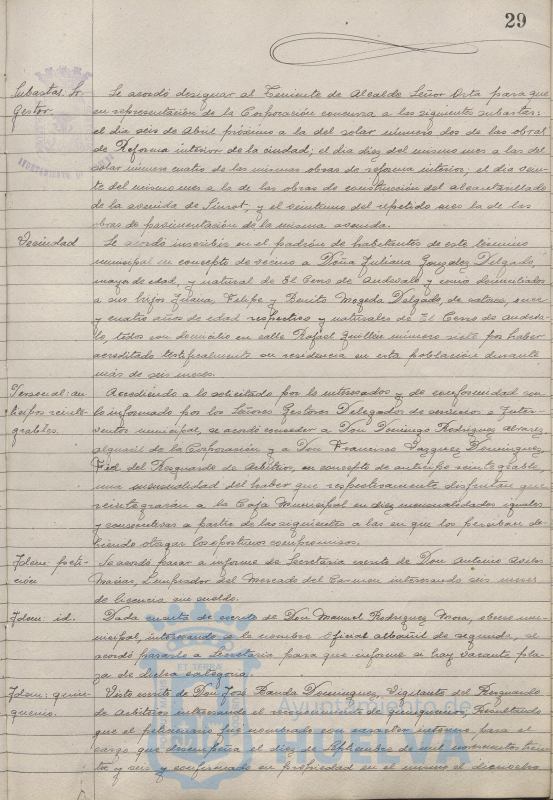 29
Subastas. Sr. Gestor.
Se acordó designar al Teniente de Alcalde Señor Orta para que
en representación de la Corporación concurra a las siguientes subastas:
el día seis de Abril próximo a la del solar número dos de las obras
de Reforma interior de la ciudad; el día diez del mismo mes a las del
solar número cuatro de las mismas obras de reforma interior; el día vein-
te del mismo mes a la de las obras de construcción del alcantarillado
de la avenida de y el veintiuno del repetido mes la de las
obras de pavimentación de la misma avenida.
Vecindad
Se acordó inscribir en el padrón de habitantes de este término
municipal en concepto de vecino a Doña Juliana González Delgado,
mayor de edad, y natural de El Cerro de Andevalo y como domiciliados
a sus hijos Juana, Felipe y Benito Delgado, de catorce, once
y cuatro años de edad respectivos y naturales de El Cerro de Andeva-
lo, todos con domicilio en calle Rafael Guillén número siete por haber
acreditado testificalmente su residencia en esta población durante
más de seis meses.
Personal: an-
ticipos reinte-
grables.
Accediendo a lo solicitado por los interesados y de conformidad con
lo informado por los Señores Gestores Delegados de servicios e Inter-
ventor municipal, se acordó conceder a Don Domingo Rodríguez Alvarez
alguacil de la Corporación y a Don Francisco Vazquez Dominguez,
Fiel del Resguardo de Arbitrios, en concepto de anticipo reintegrable,
una mensualidad del haber que respectivamente disfrutan que
reintegrarán a la Caja Municipal en diez mensualidades iguales
y consecutivas a partir de las siguientes a las en que los perciban de-
biendo otorgar los oportunos compromisos.
Idem: peti-
ción
Se acordó pasar a informe de Secretaría escrito de Don Antonio
Limpiador del Mercado del Carmen interesando seis meses
de licencia sin sueldo.
Idem: id.
Dada cuenta de escrito de Don Manuel Rodriguez Mora, obrero mu-
nicipal, interesando se le nombre oficial albañil de segunda, se
acordó pasarlo a Secretaría para que informe si hay vacante pla-
za de dicha categoría.
Idem: quin-
quenio.
Visto escrito de Don José Banda Dominguez, Vigilante del Resguardo
de Arbitrios interesando el reconocimiento de quinquenios; Resultando
que el peticionario fué nombrado con caracter interino para el
cargo que desempeña el diez de Septiembre de mil novecientos trein-
ta y seis y confirmado en propiedad en el mismo el dieciocho
Ayuntamiento de
HUELVA